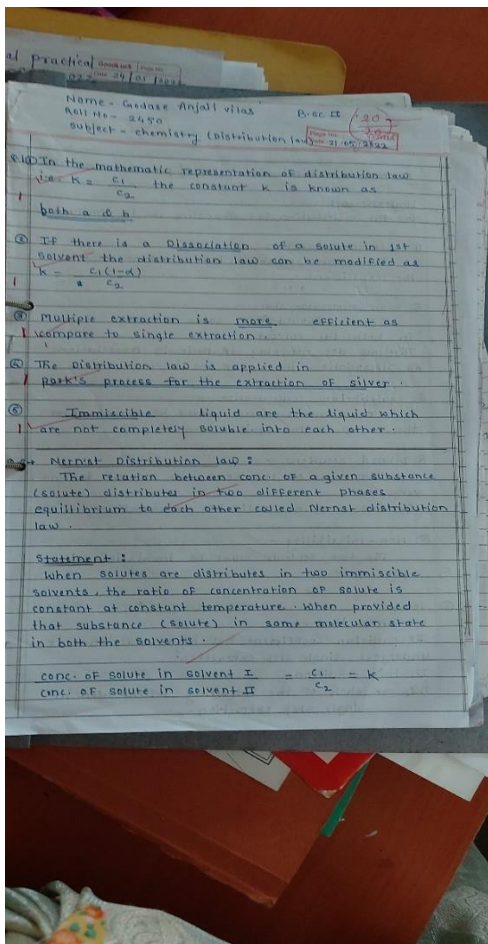 al practical
Name - Godase Anjali vilas B.Sc II 20
Roll No - 2450
Subject - chemistry (Distribution law)
Date 31/05/2022
Q.1 ① In the mathematic representation of distribution law
i.e. K = C1/C2 the constant K is known as
both a & b
② If there is a Dissociation of a solute in 1st
solvent the distribution law can be modified as
K = C1(1-α)/C2
③ Multiple extraction is more efficient as
compare to single extraction.
④ The Distribution law is applied in
park's process for the extraction of silver.
⑤ Immiscible liquid are the liquid which
are not completely soluble into each other.
Nernst Distribution law :
The relation between conc. of a given substance
(solute) distributes in two different phases
equillibrium to each other called Nernst distribution
law.
Statement :
When solutes are distributes in two immiscible
solvents, the ratio of concentration of solute is
constant at constant temperature. When provided
that substance (solute) in same molecular state
in both the solvents.
conc. of solute in solvent I / conc. of solute in solvent II = C1/C2 = K